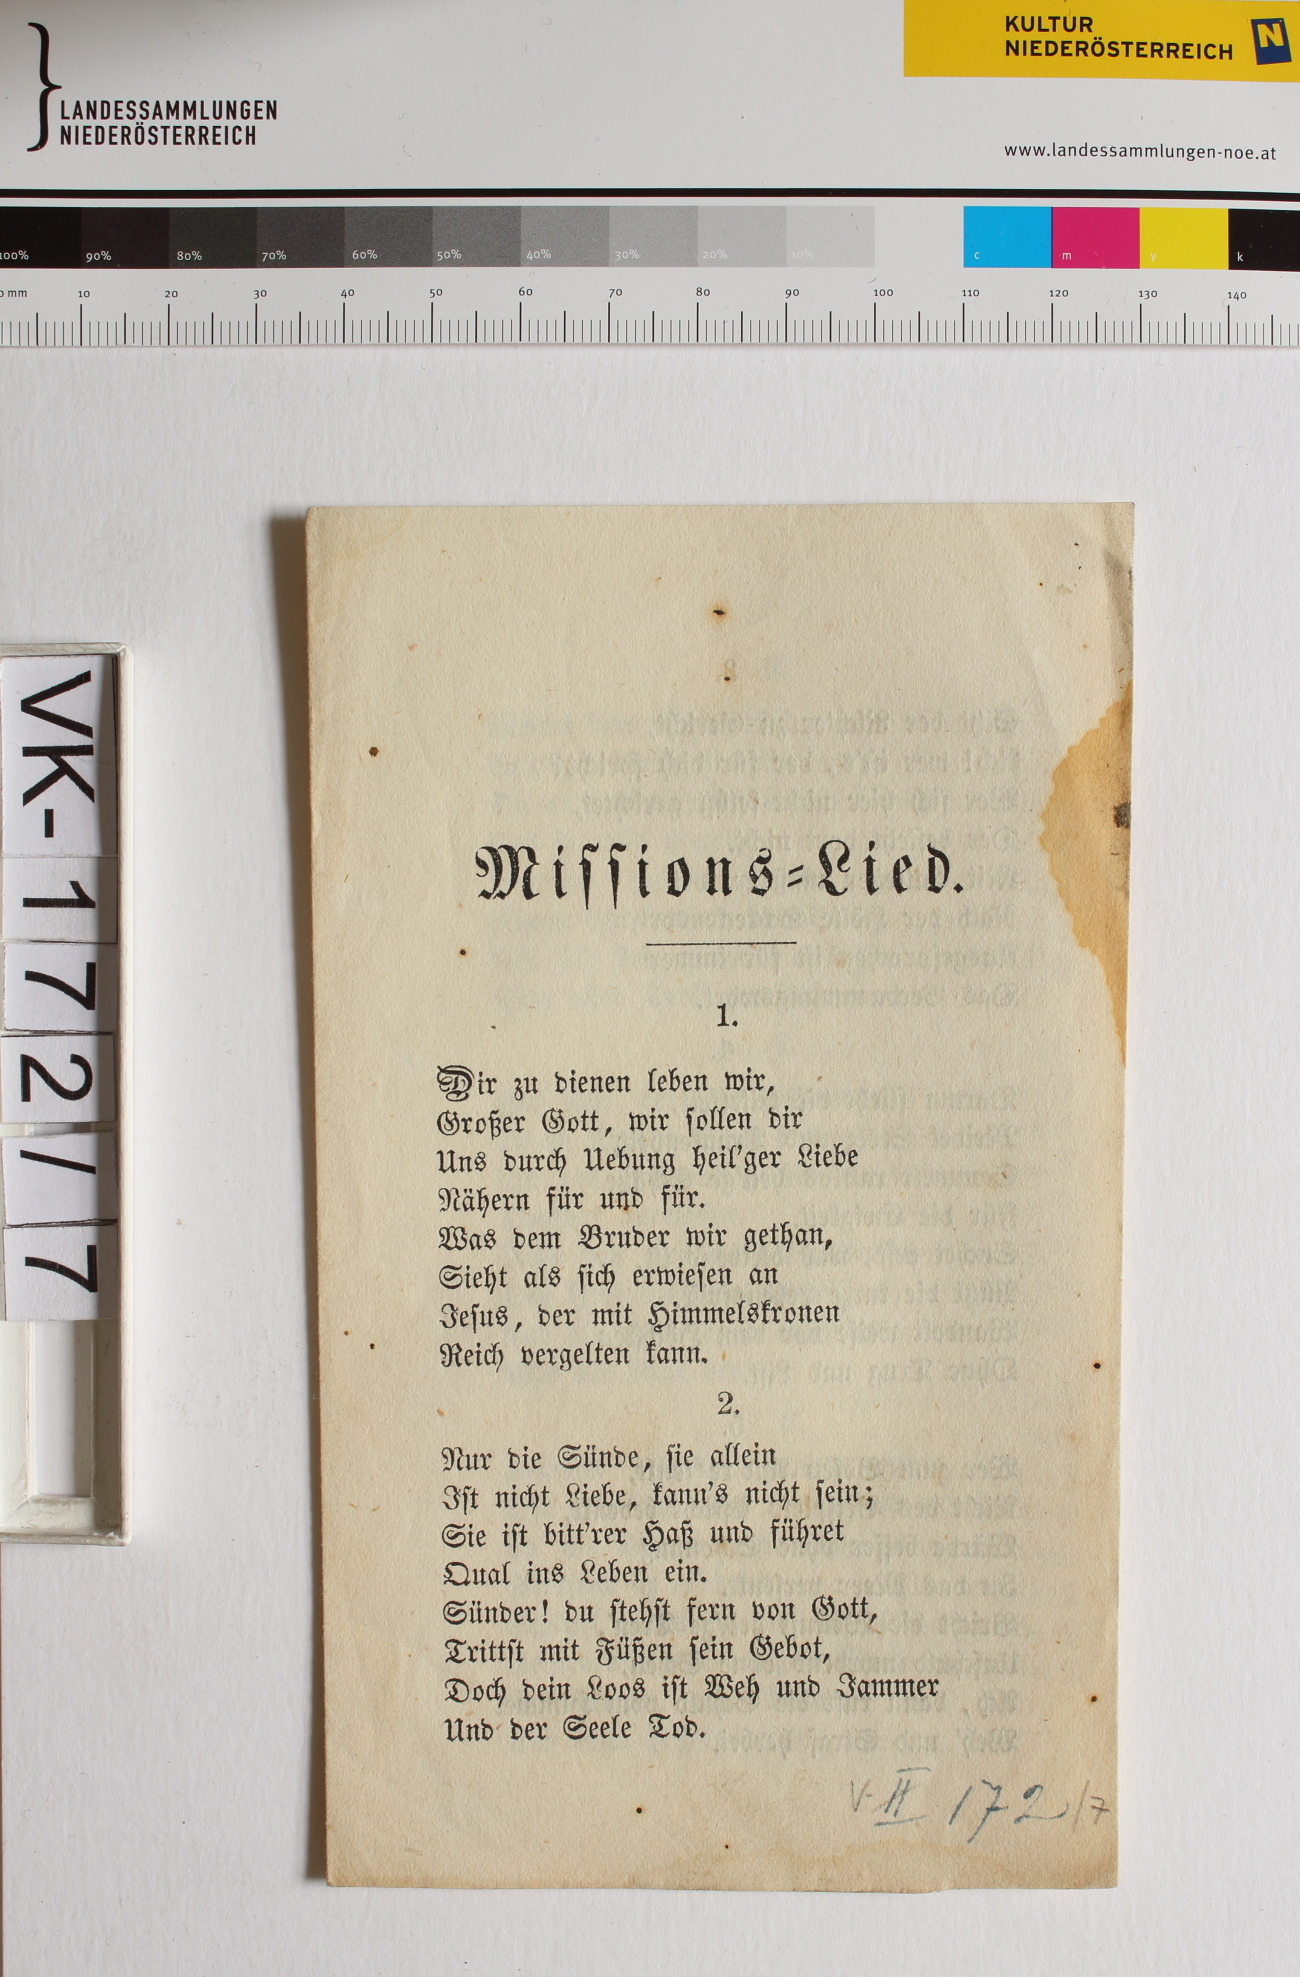 LANDESSAMMLUNGEN
NIEDERÖSTERREICH
KULTUR
NIEDERÖSTERREICH
N
www.landessammlungen-noe.at
100% 90% 80% 70% 60% 50% 40% 30% 20% 10% c m y k
0 mm 10 20 30 40 50 60 70 80 90 100 110 120 130 140
VK-172/7
Missions-Lied.
1.
Dir zu dienen leben wir,
Großer Gott, wir sollen dir
Uns durch Uebung heil'ger Liebe
Nähern für und für.
Was dem Bruder wir gethan,
Sieht als sich erwiesen an
Jesus, der mit Himmelskronen
Reich vergelten kann.
2.
Nur die Sünde, sie allein
Ist nicht Liebe, kann's nicht sein;
Sie ist bitt'rer Haß und führet
Qual ins Leben ein.
Sünder! du stehst fern von Gott,
Trittst mit Füßen sein Gebot,
Doch dein Loos ist Weh und Jammer
Und der Seele Tod.
V-II 172/7